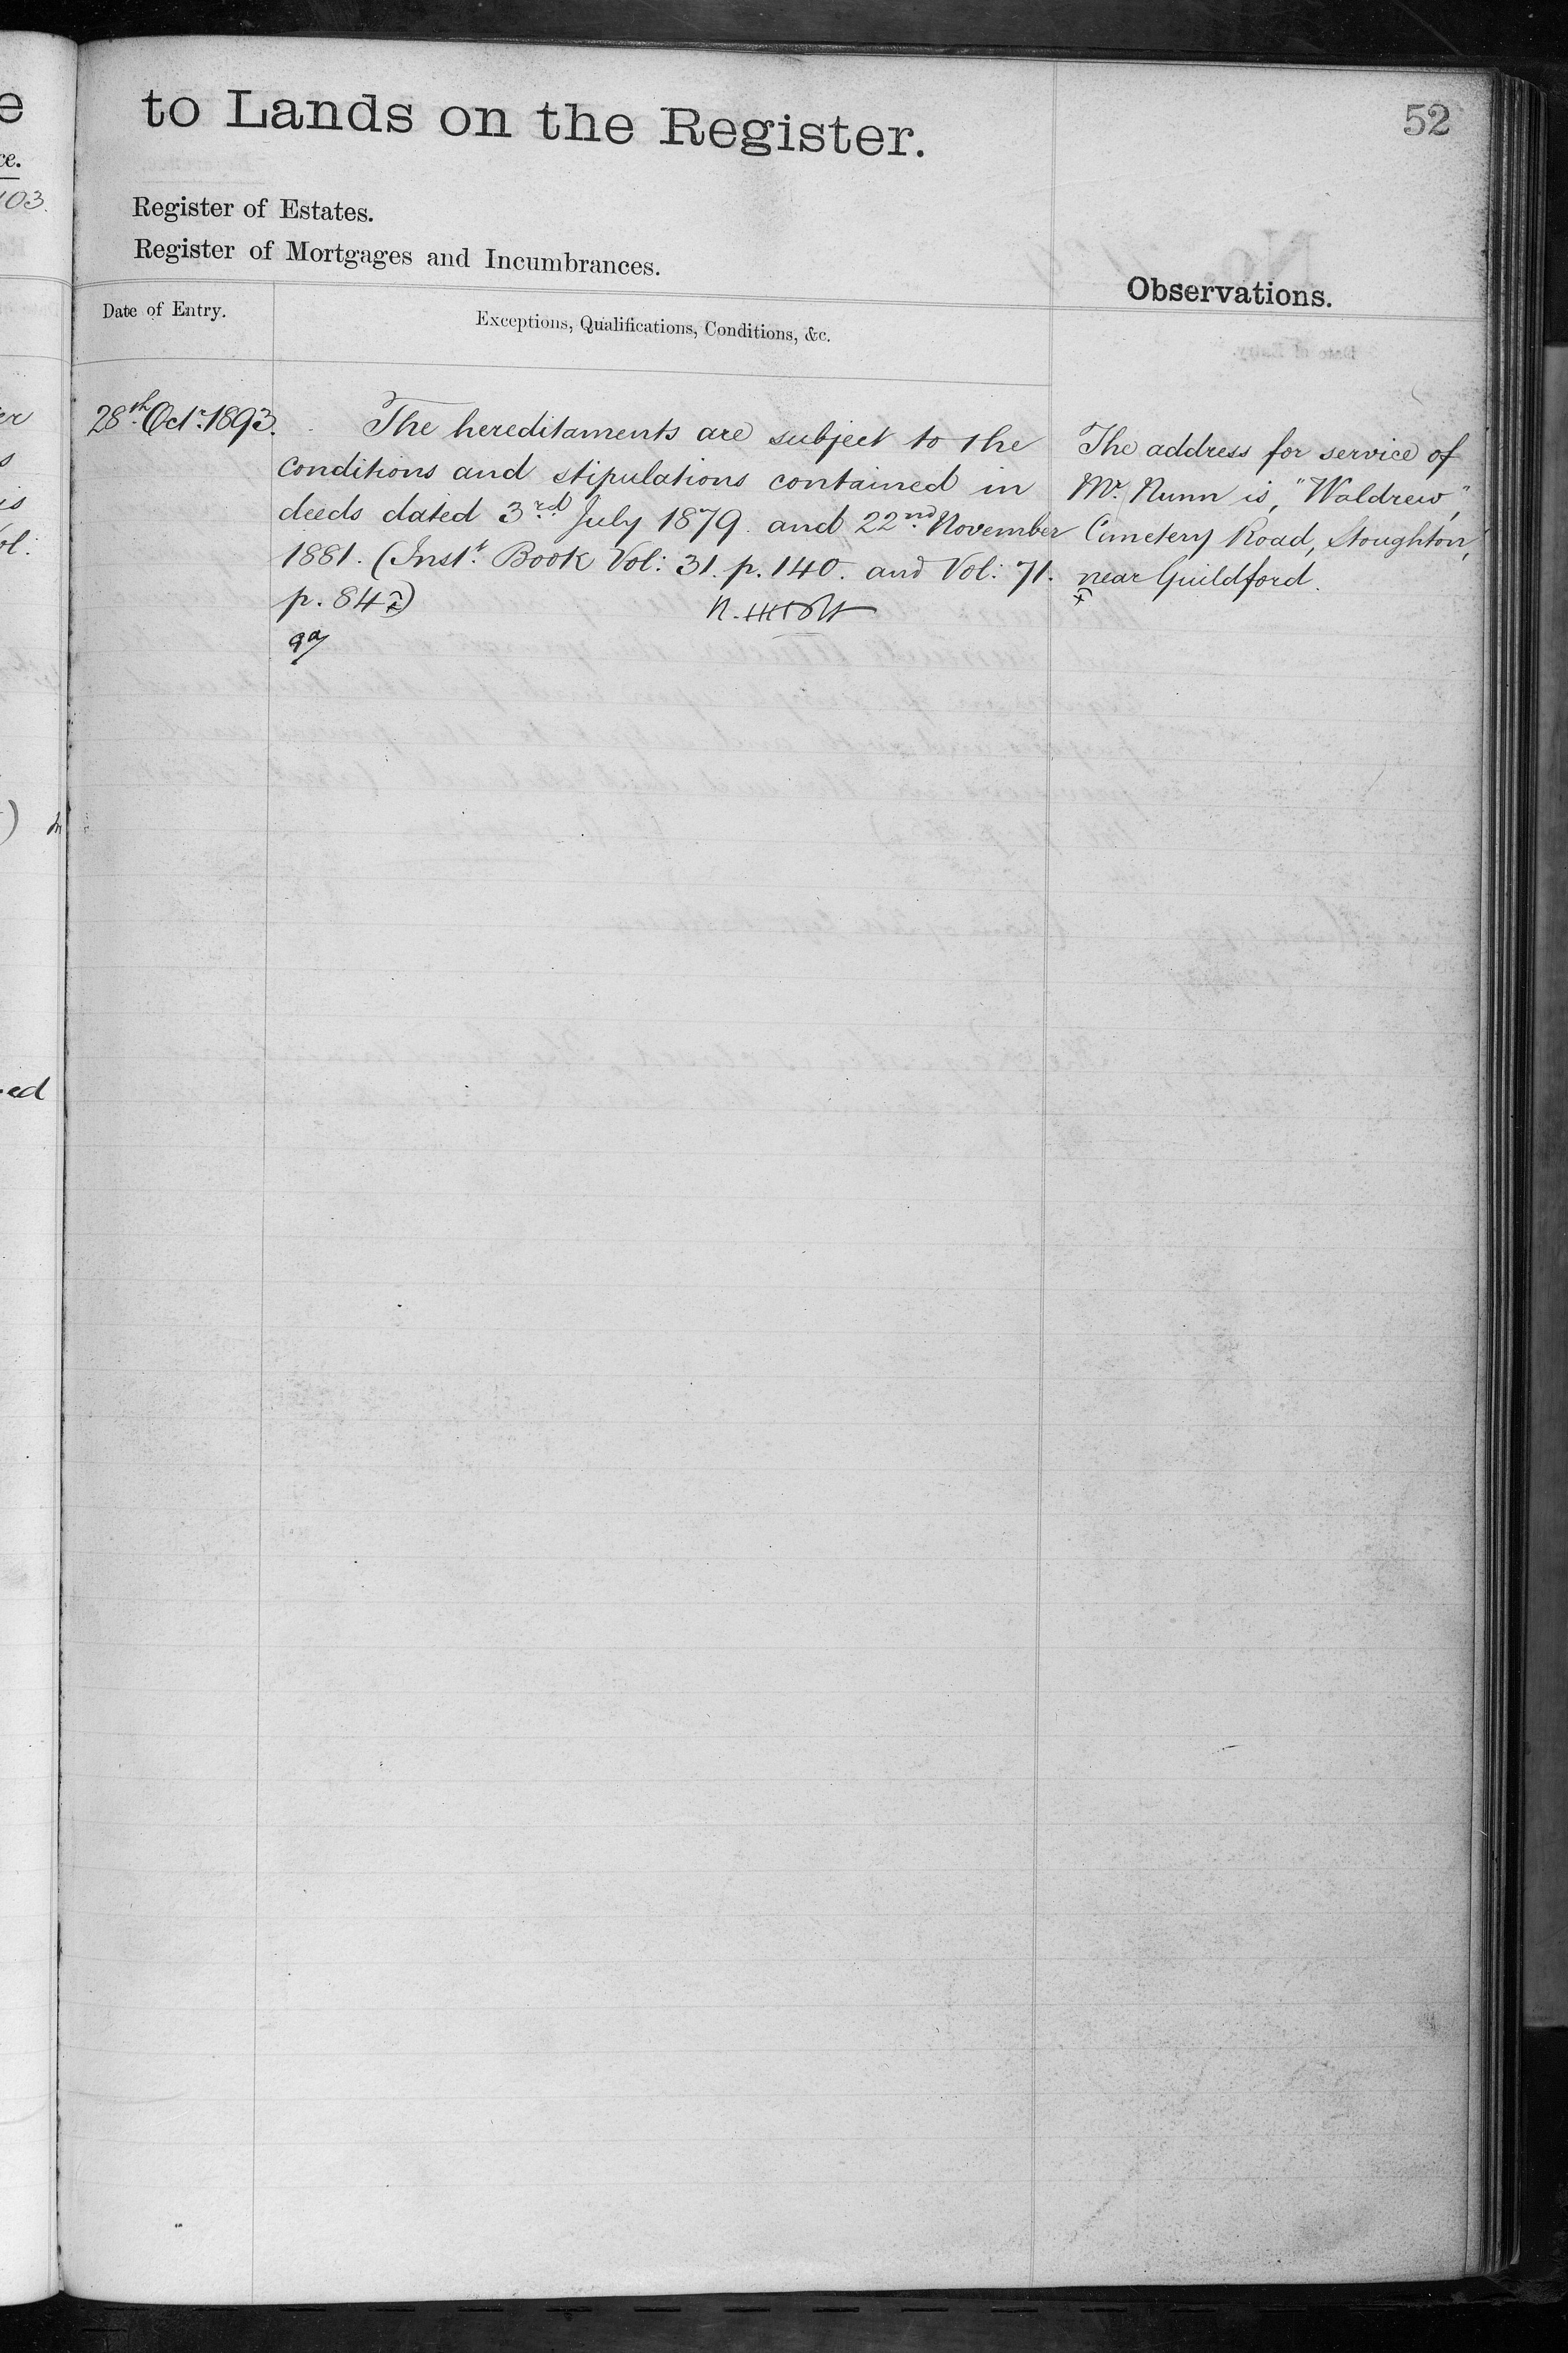 to Lands on the Register.
52
Register of Estates.
Register of Mortgages and Incumbrances.
Observations.
Date of Entry.
Exceptions, Qualifications, Conditions, &c.
28th Octr. 1893.
The hereditaments are subject to the
conditions and stipulations contained in
deeds dated 3rd July 1879. and 22nd November
1881. (Inst. Book Vol: 31. p. 140. and Vol: 71.
p. 84
The address for service of
Mr. Nunn is, "Waldrew,"
Cemetery Road, Stoughton,
near Guildford.